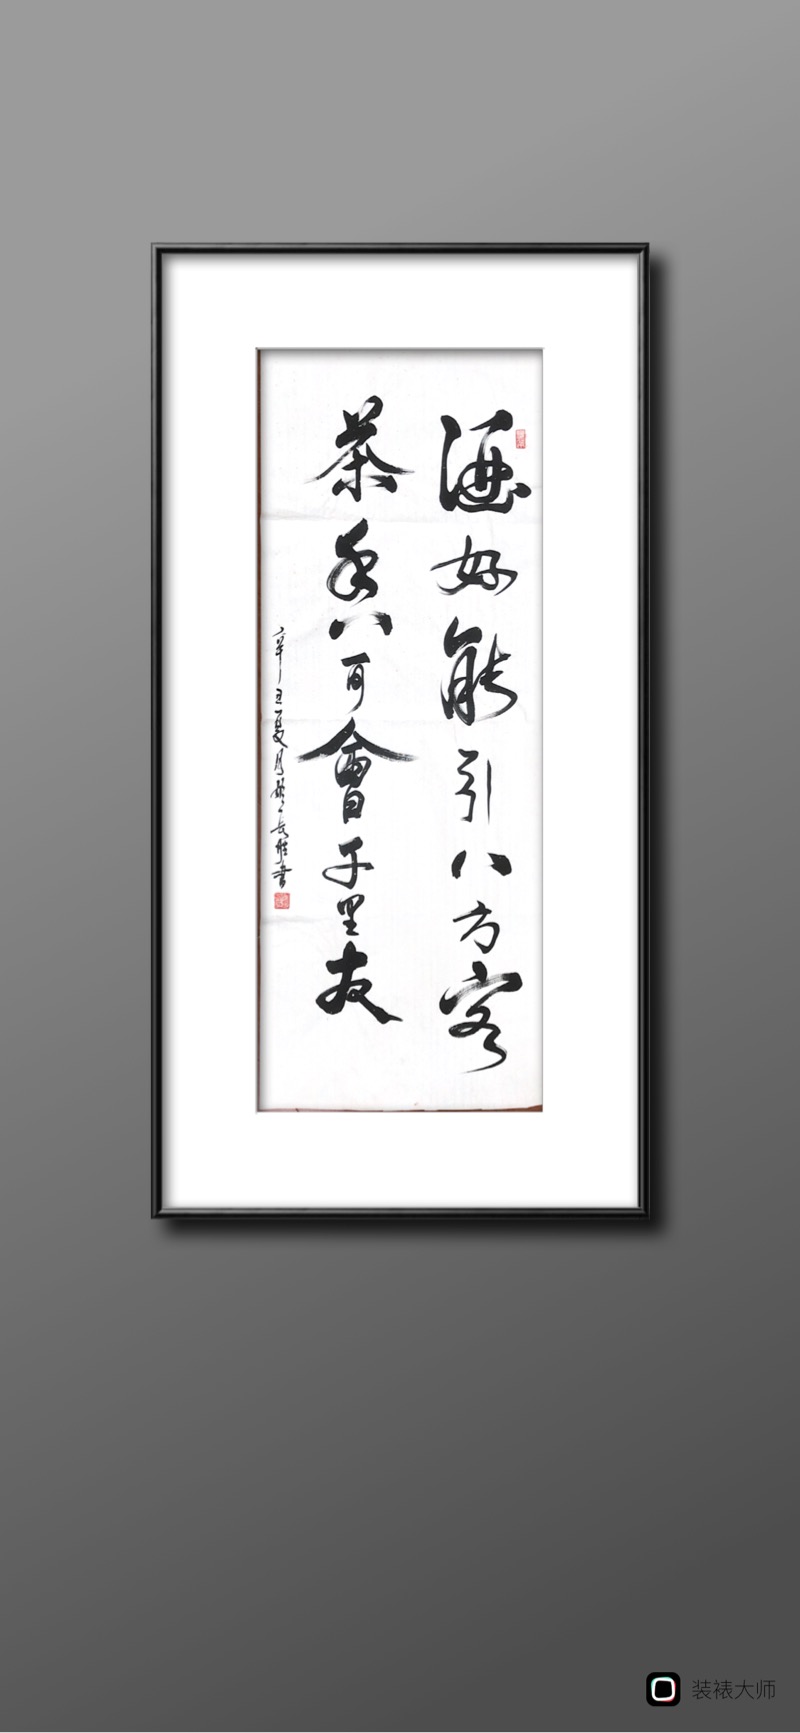 酒好能引八方客
茶香可會千里友
辛丑夏月 長勝書
装裱大师